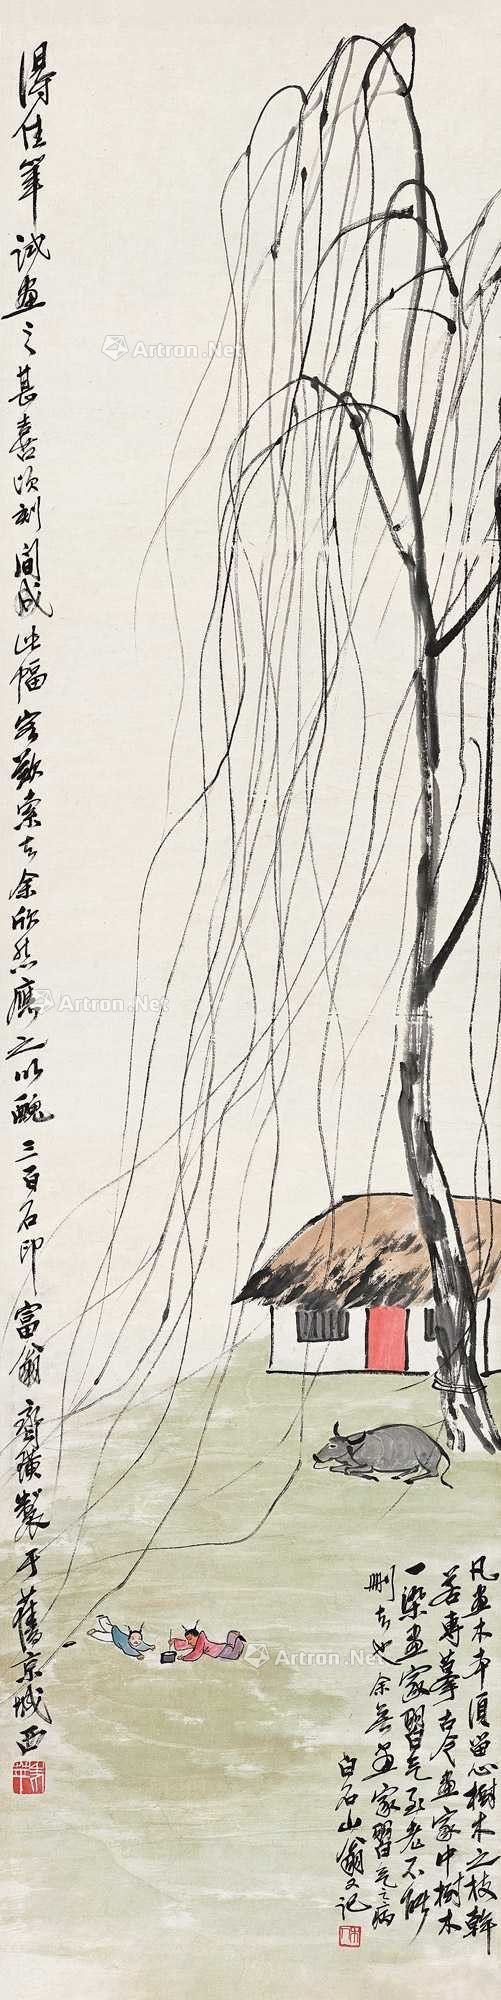 得佳筆試畫之甚喜頃刻間成此幅客欲索去余欣然應之以醜三百石印富翁齊璜製于舊京城西
凡畫木本須留心樹木之枝幹
若專摹古今畫家中樹木
一染畫家習氣至老不能
刪去也余無畫家習氣之病
白石山翁又記
Artron.Net
Artron.Net
Artron.Net
Artron.Net